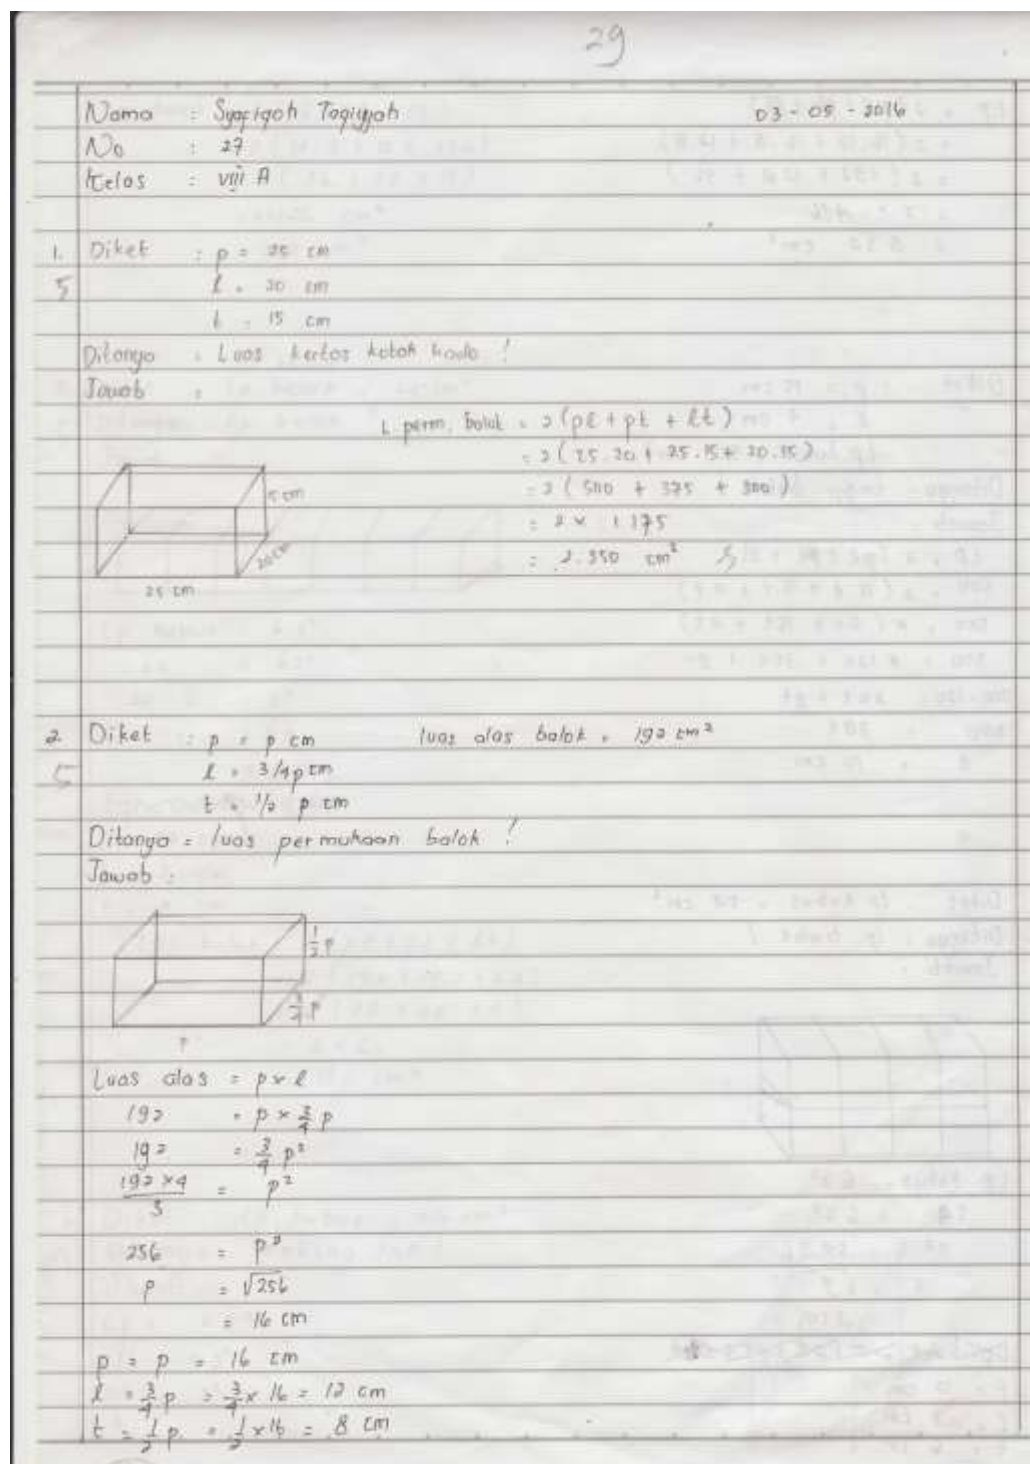 29
Nama : Syafiqoh Taqiyyah 03 - 05 - 2016
No : 27
Kelas : VIII A
1. Diket : p = 25 cm
5 l = 20 cm
t = 15 cm
Ditanya = Luas kertas kotak kado !
Jawab :
L perm. balok = 2 (pl + pt + lt)
= 2 (25.20 + 25.15 + 20.15)
= 2 ( 500 + 375 + 300 )
= 2 × 1.175
= 2.350 cm² 5
15 cm
20 cm
25 cm
2. Diket : p = p cm luas alas balok = 192 cm²
5 l = 3/4 p cm
t = 1/2 p cm
Ditanya = luas permukaan balok !
Jawab :
1/2 p
3/4 p
p
Luas alas = p × l
192 = p × 3/4 p
192 = 3/4 p²
192 × 4 / 3 = p²
256 = p²
p = √256
= 16 cm
p = p = 16 cm
l = 3/4 p = 3/4 × 16 = 12 cm
t = 1/2 p = 1/2 × 16 = 8 cm